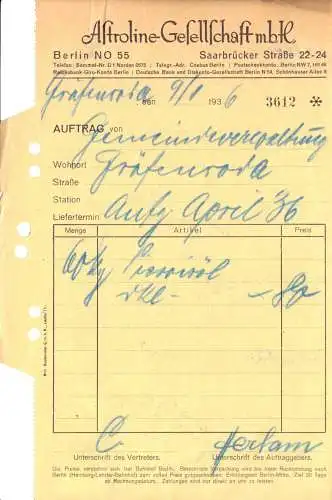 Astroline-Gesellschaft m.b.H.
Berlin NO 55 Saarbrücker Straße 22-24
Telefon: Sammel-Nr. D 1 Norden 0575 / Telegr.-Adr. Berlin / Postscheckkonto: Berlin NW 7,
Reichsbank-Giro-Konto Berlin / Deutsche Bank und Diskonto-Gesellschaft Berlin N 54, Schönhauser Allee 8
Gräfenroda den 9/1 1936 3612 ✻
AUFTRAG von Gemeindeverwaltung
Wohnort Gräfenroda
Straße
Station
Liefertermin Anfg April 36
Menge Artikel Preis
60 kg
dkl - -80
Hertam
Unterschrift des Vertreters. Unterschrift des Auftraggebers.
Die Preise verstehen sich bei Bahnhof Berlin. Berechnete Verpackung wird bei freier Rücksendung nach
Berlin (Hamburg-Lehrter-Bahnhof) zum vollen Preis gutgeschrieben. Erfüllungsort Berlin-Mitte. Ziel 30 Tage
ab Rechnungsdatum. Zahlungen sind nur direkt an uns zu leisten.